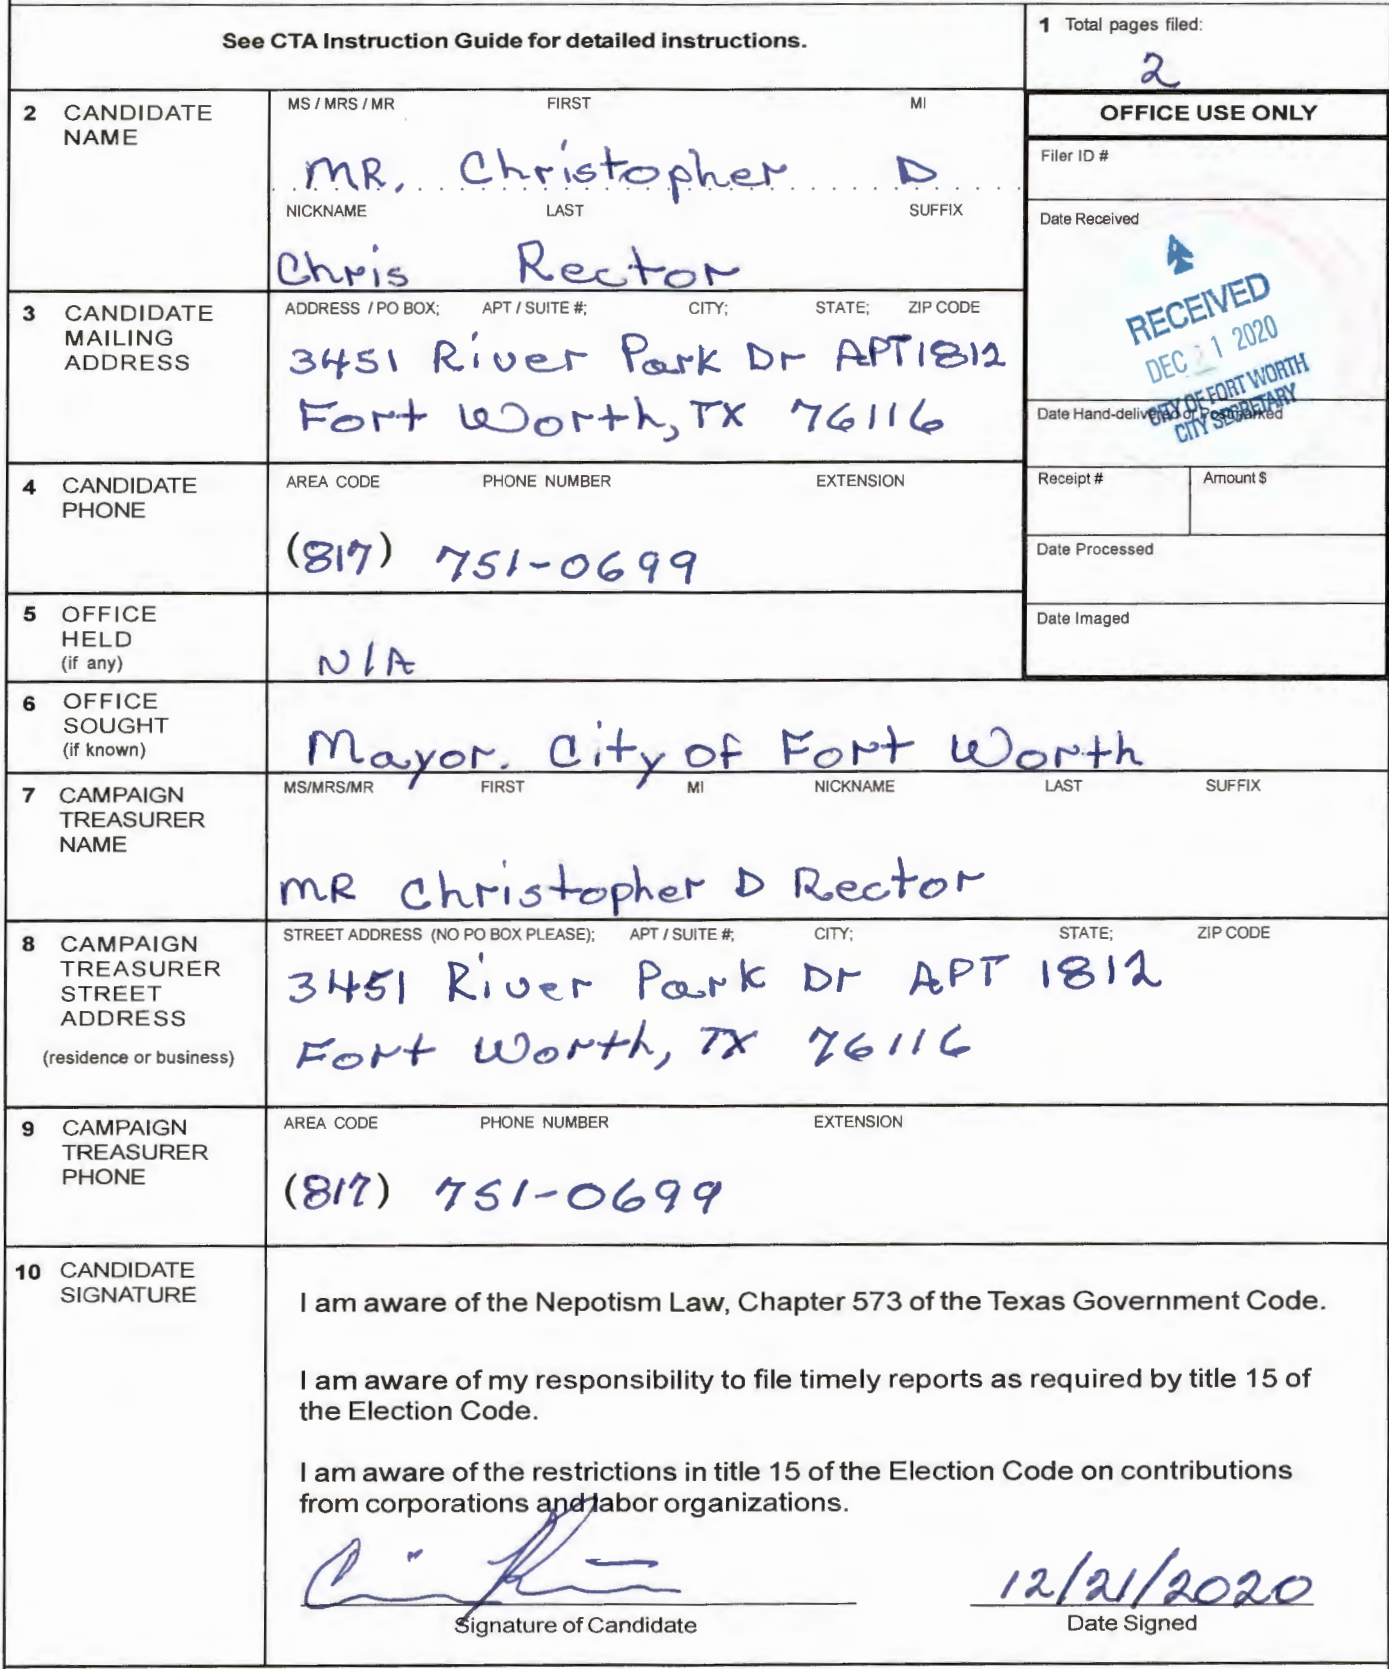 See CTA Instruction Guide for detailed instructions.
1 Total pages filed:
2
2 CANDIDATE NAME
MS / MRS / MR FIRST MI
MR. Christopher D
NICKNAME LAST SUFFIX
Chris Rector
OFFICE USE ONLY
Filer ID #
Date Received
RECEIVED
DEC 21 2020
CITY OF FORT WORTH
CITY SECRETARY
Date Hand-delivered or Postmarked
Receipt # Amount $
Date Processed
Date Imaged
3 CANDIDATE MAILING ADDRESS
ADDRESS / PO BOX; APT / SUITE #; CITY; STATE; ZIP CODE
3451 River Park Dr APT 1812
Fort Worth, TX 76116
4 CANDIDATE PHONE
AREA CODE PHONE NUMBER EXTENSION
(817) 751-0699
5 OFFICE HELD (if any)
N/A
6 OFFICE SOUGHT (if known)
Mayor. City of Fort Worth
7 CAMPAIGN TREASURER NAME
MS/MRS/MR FIRST MI NICKNAME LAST SUFFIX
MR Christopher D Rector
8 CAMPAIGN TREASURER STREET ADDRESS
(residence or business)
STREET ADDRESS (NO PO BOX PLEASE); APT / SUITE #; CITY; STATE; ZIP CODE
3451 River Park Dr APT 1812
Fort Worth, TX 76116
9 CAMPAIGN TREASURER PHONE
AREA CODE PHONE NUMBER EXTENSION
(817) 751-0699
10 CANDIDATE SIGNATURE
I am aware of the Nepotism Law, Chapter 573 of the Texas Government Code.
I am aware of my responsibility to file timely reports as required by title 15 of
the Election Code.
I am aware of the restrictions in title 15 of the Election Code on contributions
from corporations and labor organizations.
12/21/2020
Signature of Candidate Date Signed